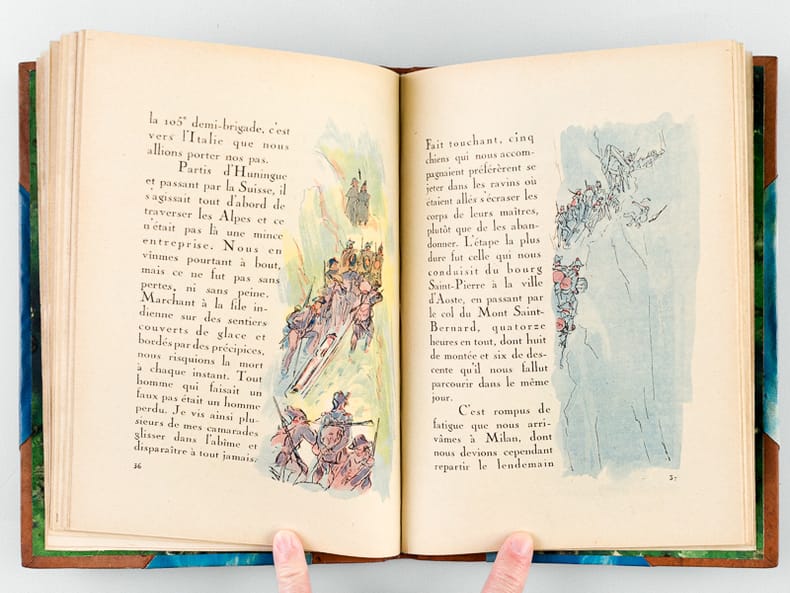 la 105e demi-brigade, c'est
vers l'Italie que nous
allions porter nos pas.
Partis d'Huningue
et passant par la Suisse, il
s'agissait tout d'abord de
traverser les Alpes et ce
n'était pas là une mince
entreprise. Nous en
vînmes pourtant à bout,
mais ce ne fut pas sans
pertes, ni sans peine.
Marchant à la file in-
dienne sur des sentiers
couverts de glace et
bordés par des précipices,
nous risquions la mort
à chaque instant. Tout
homme qui faisait un
faux pas était un homme
perdu. Je vis ainsi plu-
sieurs de mes camarades
glisser dans l'abîme et
disparaître à tout jamais.
36
Fait touchant, cinq
chiens qui nous accom-
pagnaient préférèrent se
jeter dans les ravins où
étaient allés s'écraser les
corps de leurs maîtres,
plutôt que de les aban-
donner. L'étape la plus
dure fut celle qui nous
conduisit du bourg
Saint-Pierre à la ville
d'Aoste, en passant par
le col du Mont Saint-
Bernard, quatorze
heures en tout, dont huit
de montée et six de des-
cente qu'il nous fallut
parcourir dans le même
jour.
C'est rompus de
fatigue que nous arri-
vâmes à Milan, dont
nous devions cependant
repartir le lendemain
37